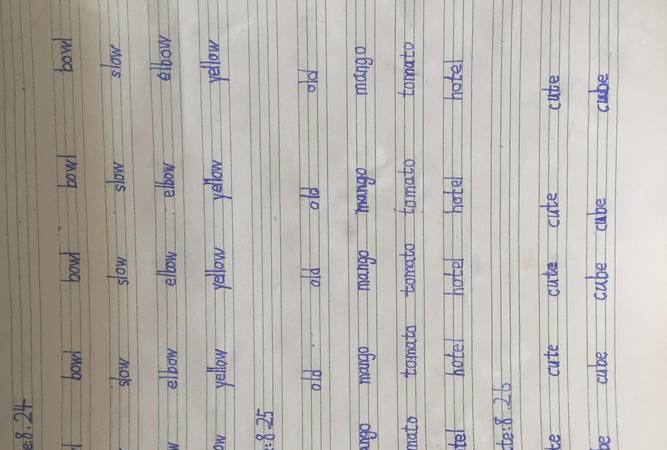 e:8.24
bowl bowl bowl bowl
slow slow slow slow
w elbow elbow elbow elbow
ow yellow yellow yellow yellow
e:8.25
old old old old
ango mango mango mango mango
mato tomato tomato tomato tomato
tel hotel hotel hotel hotel
te:8.26
te cute cute cute cute
be cube cube cube cube